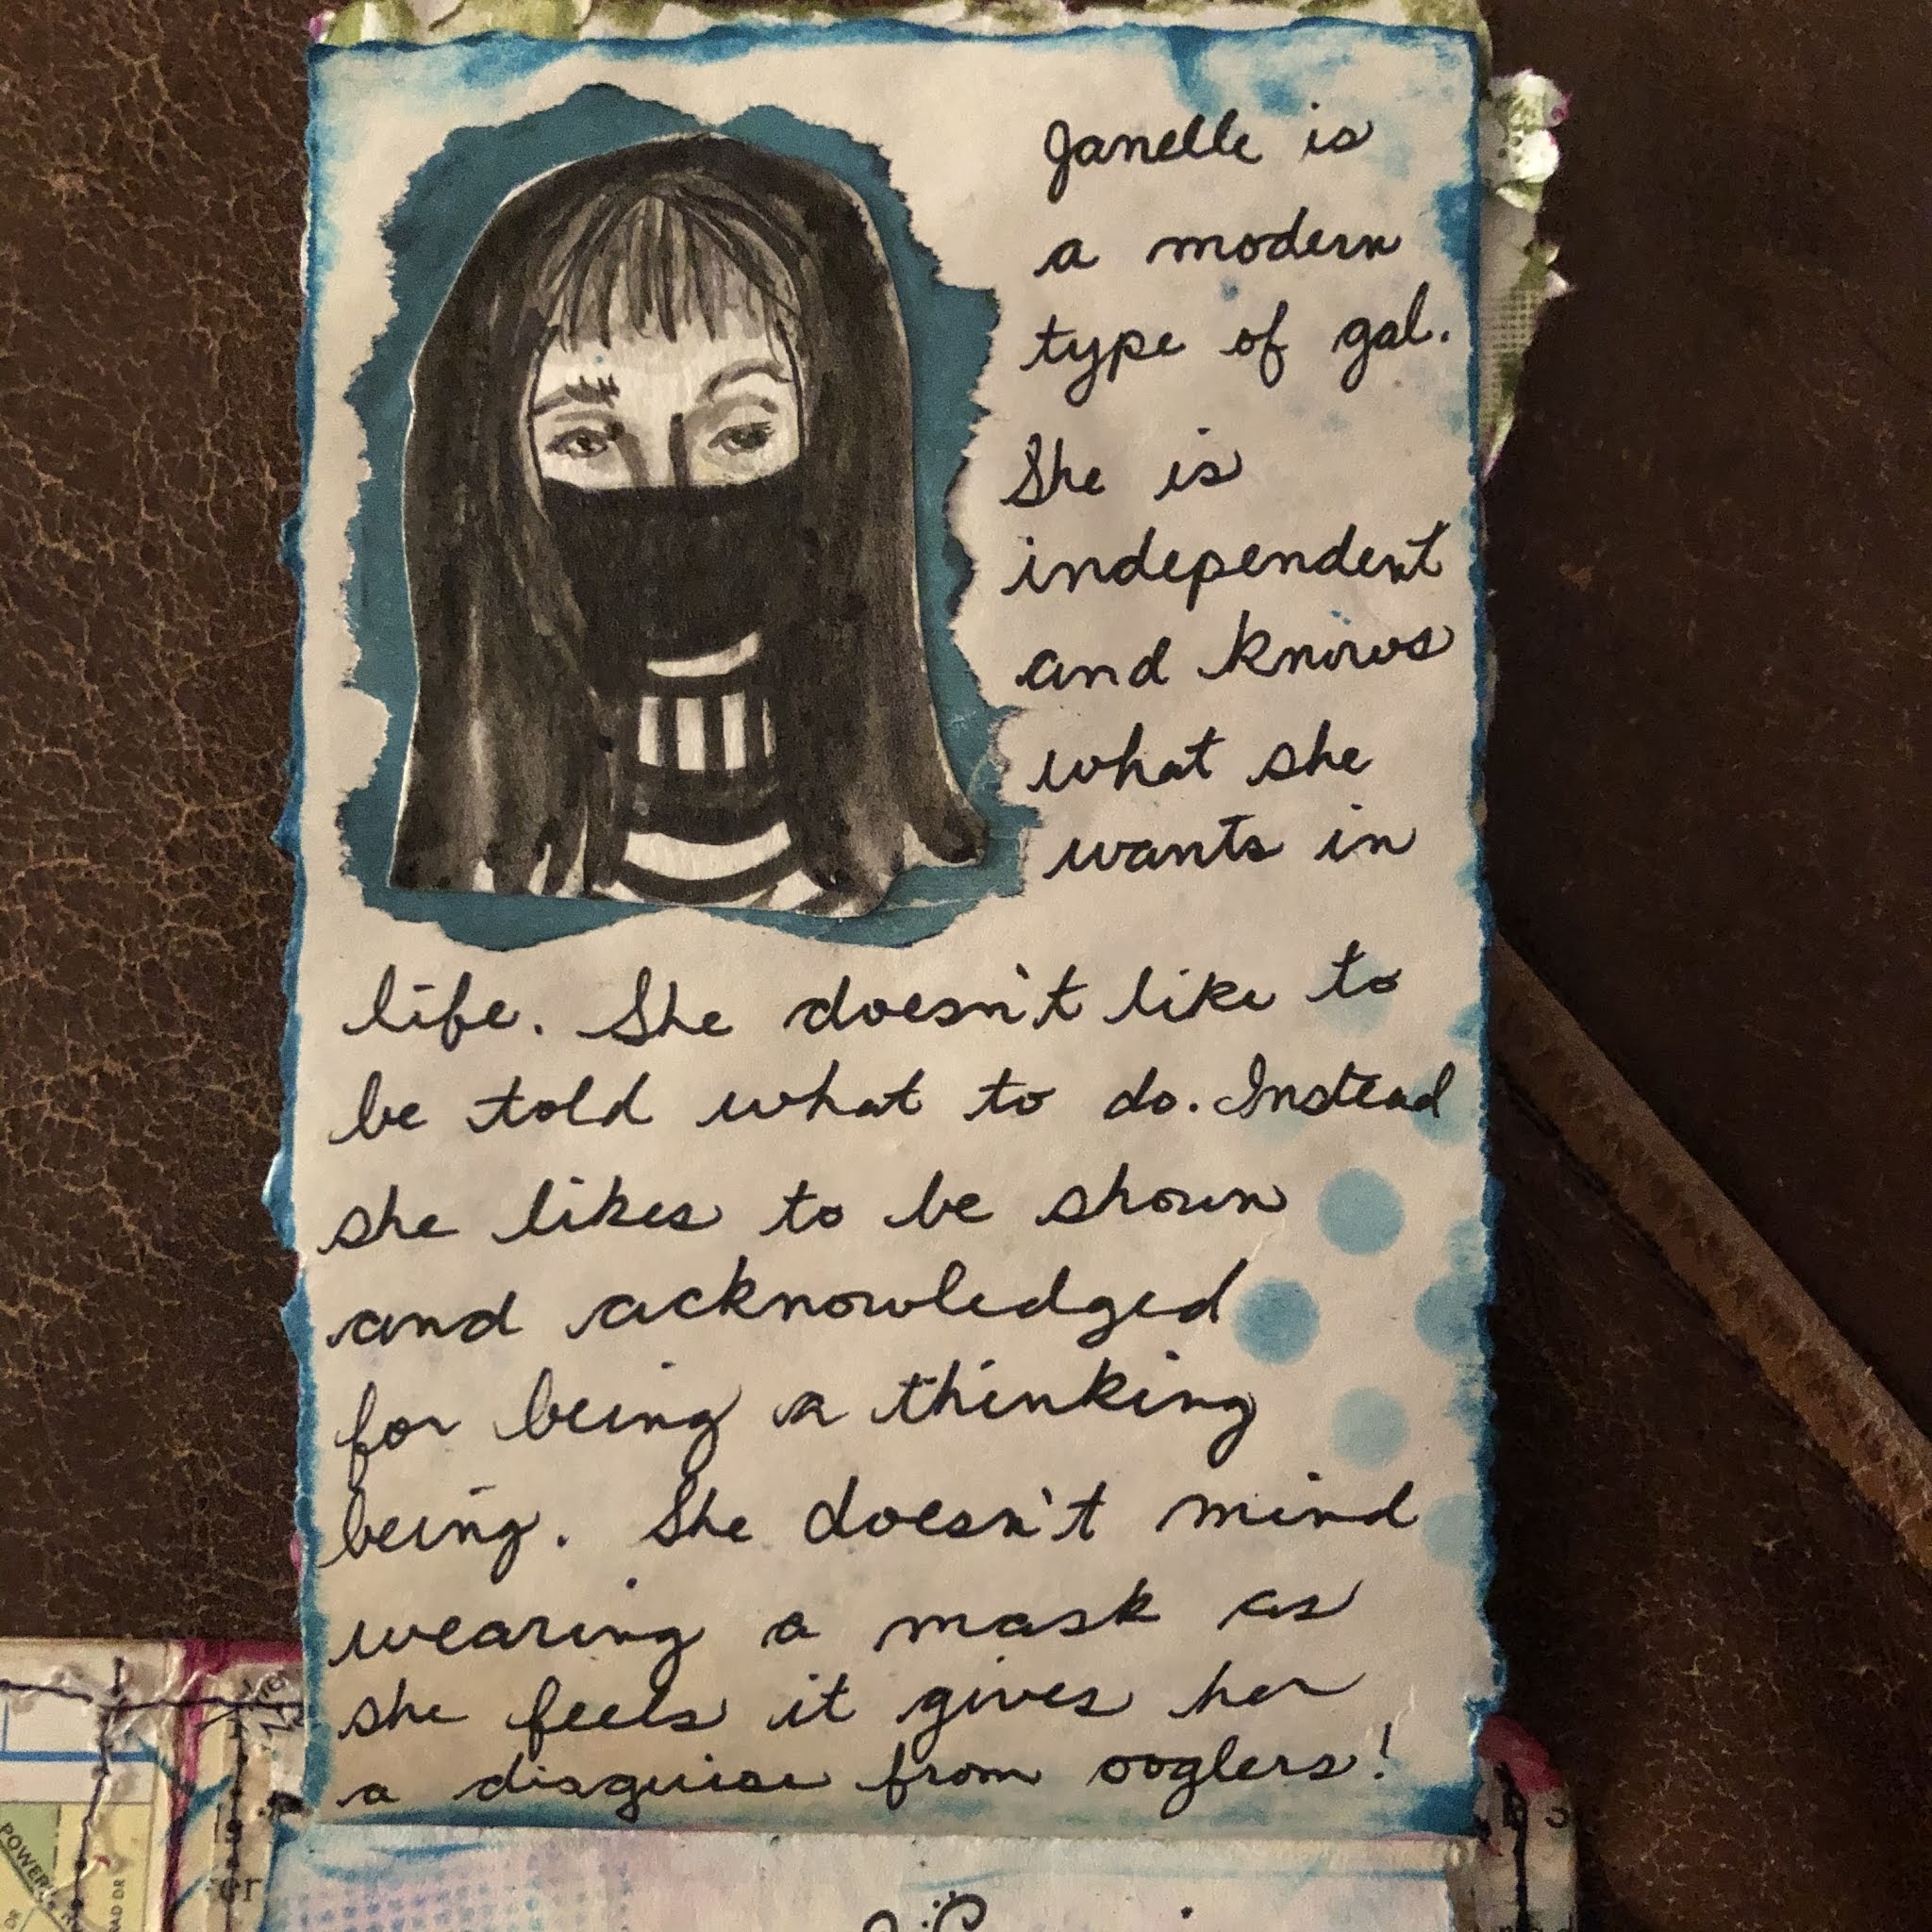 Janelle is
a modern
type of gal.
She is
independent
and knows
what she
wants in
life. She doesn't like to
be told what to do. Instead
she likes to be shown
and acknowledged
for being a thinking
being. She doesn't mind
wearing a mask as
she feels it gives her
a disguise from ooglers!
POWER
AD DR
er